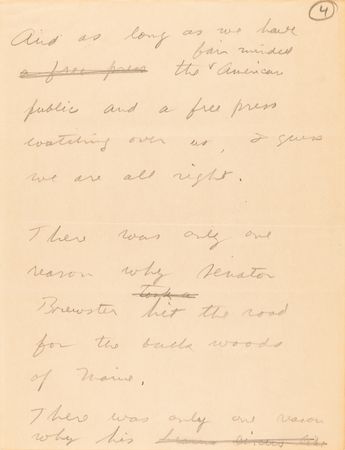 4
And as long as we have
fair minded
a free press the ˅ American
public and a free press
watching over us, I guess
we are all right.
There was only one
reason why Senator
took a
Brewster hit the road
for the back woods
of Maine.
There was only one reason
why his